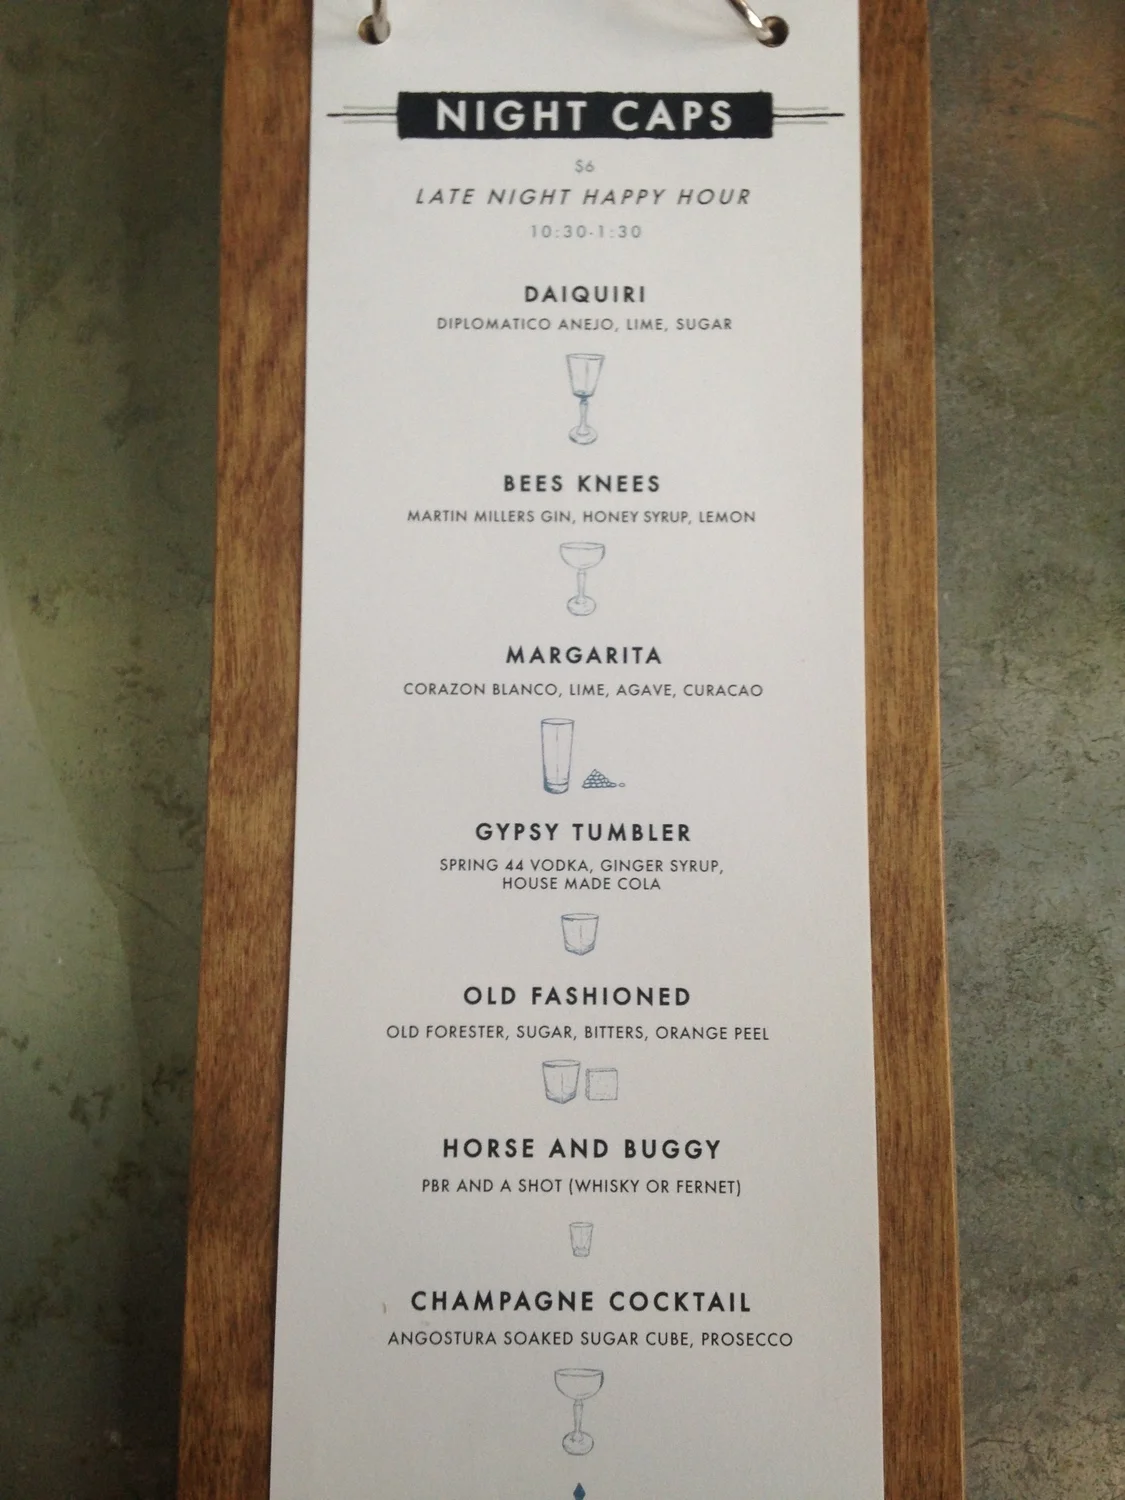 NIGHT CAPS
$6
LATE NIGHT HAPPY HOUR
10:30-1:30
DAIQUIRI
DIPLOMATICO ANEJO, LIME, SUGAR
BEES KNEES
MARTIN MILLERS GIN, HONEY SYRUP, LEMON
MARGARITA
CORAZON BLANCO, LIME, AGAVE, CURACAO
GYPSY TUMBLER
SPRING 44 VODKA, GINGER SYRUP,
HOUSE MADE COLA
OLD FASHIONED
OLD FORESTER, SUGAR, BITTERS, ORANGE PEEL
HORSE AND BUGGY
PBR AND A SHOT (WHISKY OR FERNET)
CHAMPAGNE COCKTAIL
ANGOSTURA SOAKED SUGAR CUBE, PROSECCO